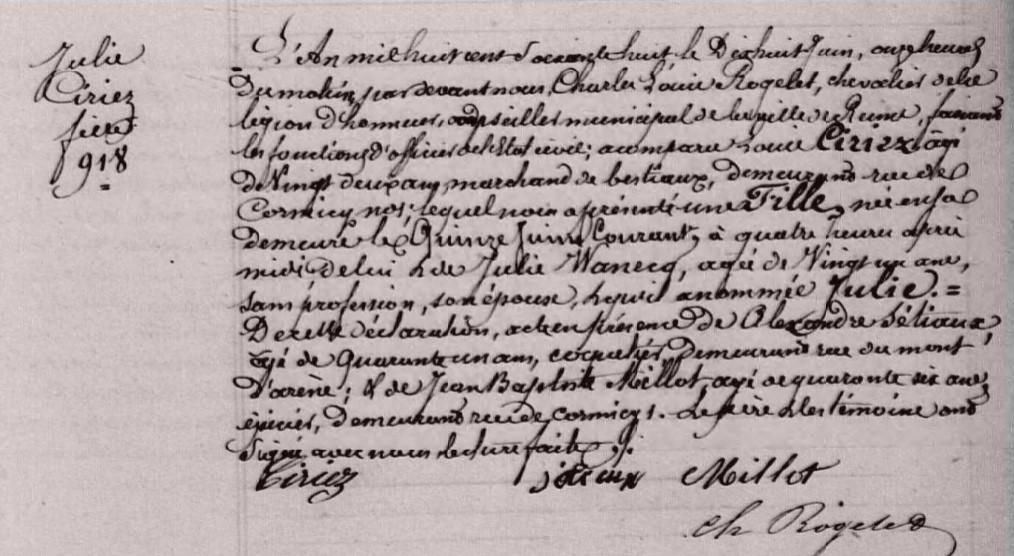 Julie
Ciriez
918
L'An mil huit cent soixante huit, le Dix huit Juin, onze heures
du matin, par devant nous, Charles Louis Rogelet, chevalier de la
légion d'honneur, conseiller municipal de la ville de Reims, faisant
les fonctions d'officier de l'Etat civil; a comparu Louis Ciriez, agé
de Vingt deux ans, marchand de bestiaux, demeurant rue de
Cormicy nos; lequel nous a présenté une Fille, née en sa
demeure le Quinze Juin Courant, à quatre heures après
midi de lui & de Julie Wanecq, agée de Vingt un ans,
sans profession, son épouse, & qu'il a nommée Julie. =
De cette déclaration, acte en présence de Alexandre Sétiaux
agé de Quarante un ans, coquetier, demeurant rue du mont
d'arène; & de Jean Baptiste Millot, agé de quarante six ans,
épicier, demeurant rue de Cormicy 1. Le père & les témoins ont
signé avec nous lecture faite ./.
Ciriez Millot
Ch Rogelet